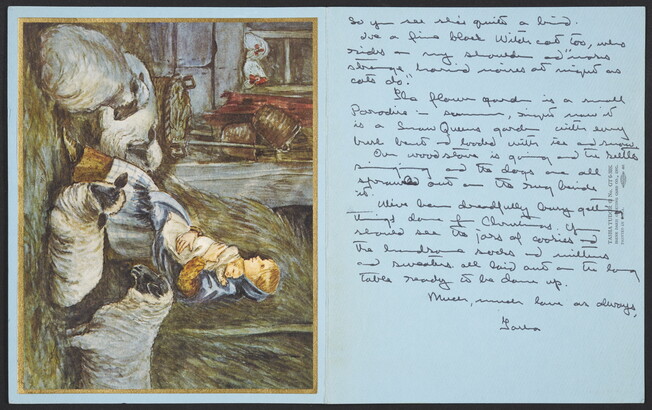 So you see she's quite a bird.
I've a fine black Witch cat too, who
rides on my shoulder and "makes
strange horrid noises at night as
cats do".
The flower garden is a small
Paradise in summer, right now it
is a Snow Queens garden with every
bush bent and loaded with ice and snow.
Our wood stove is going and the kettle
singing and the dogs are all
sprawled out on the rug beside
it.
We've been dreadfully busy getting
things done for Christmas. You
should see the jars of cookies and
the handsome socks and mittens
and sweaters all laid out on the long
table ready to be done up.
Much, much love as always,
Tasha
TASHA TUDOR